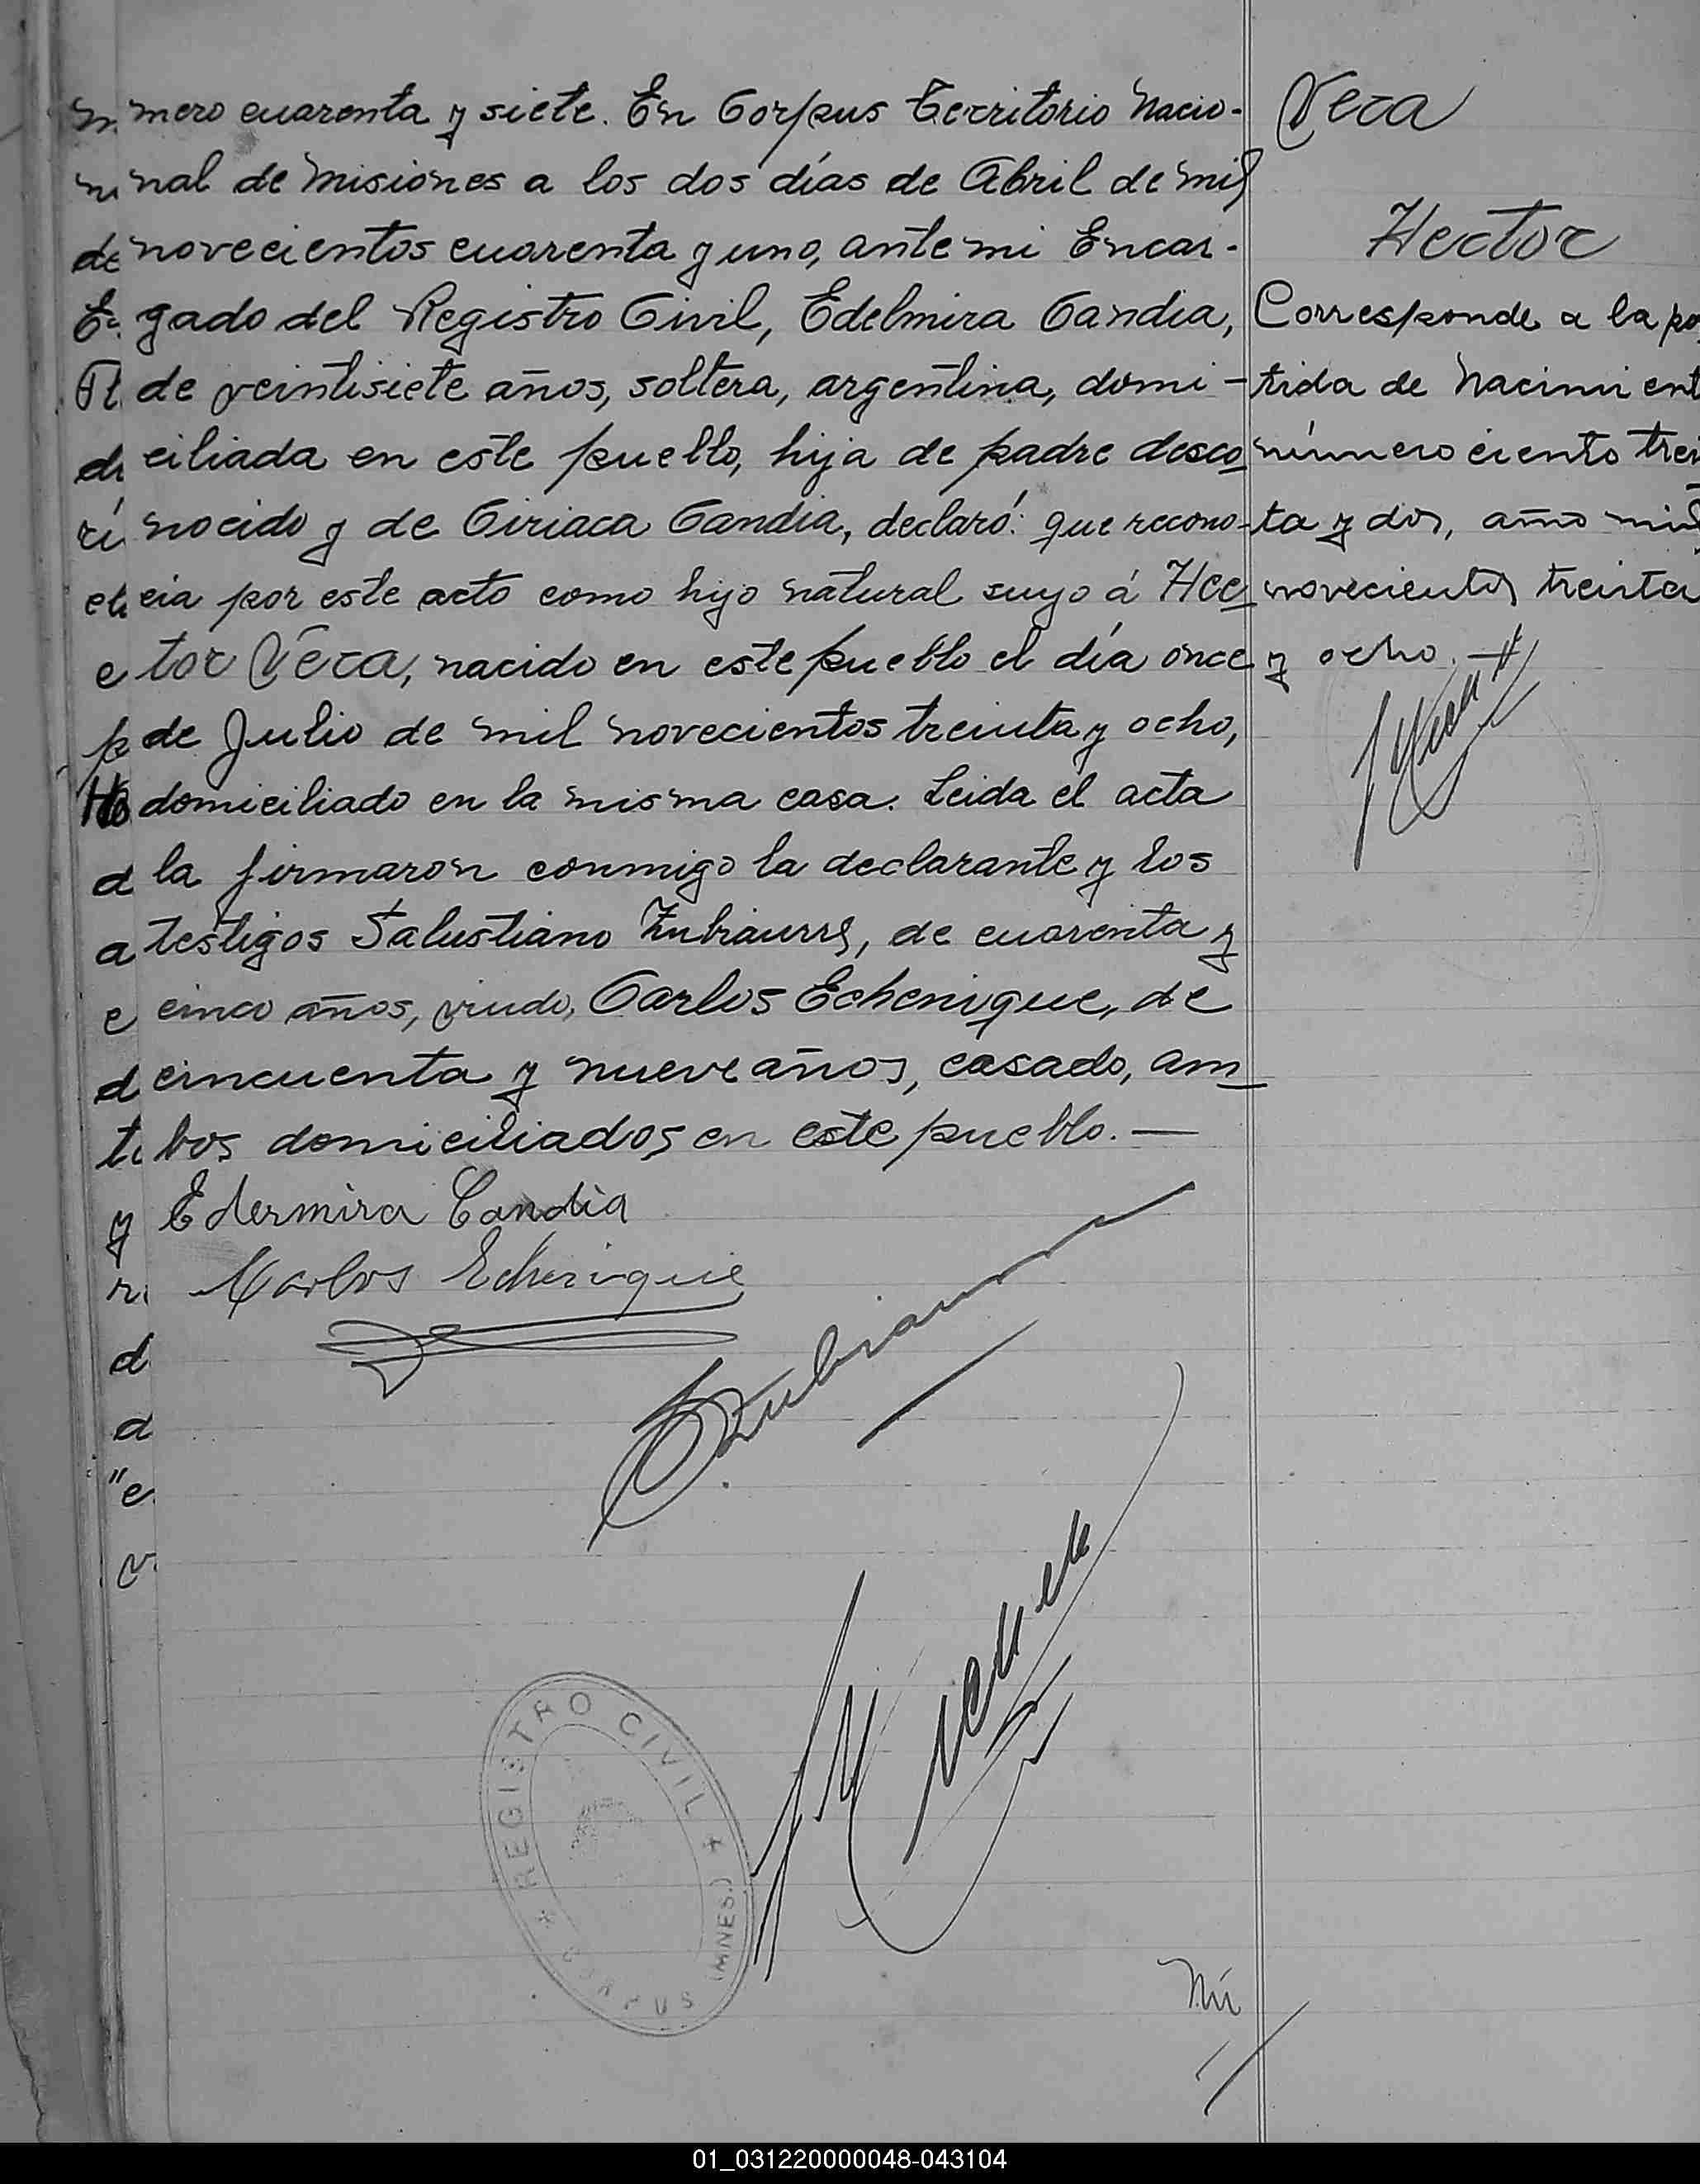 mero cuarenta y siete. En Corpus Territorio Nacio-
nal de Misiones a los dos días de Abril de mil
novecientos cuarenta y uno, ante mi Encar-
gado del Registro Civil, Edelmira Candia,
de veintisiete años, soltera, argentina, domi-
ciliada en este pueblo, hija de padre desco-
nocido y de Ciriaca Candia, declaró: que recono-
cia por este acto como hijo natural suyo á Hec-
tor Vera, nacido en este pueblo el día once
de Julio de mil novecientos treinta y ocho,
domiciliado en la misma casa. Leida el acta
la firmaron conmigo la declarante y los
testigos Salustiano Zubiaurre, de cuarenta y
cinco años, viudo, Carlos Echenique, de
cincuenta y nueve años, casado, am-
bos domiciliados en este pueblo.—
Edermira Candia
Carlos Echenique
Zubiaurre
REGISTRO CIVIL
CORPUS (MNES.)
Nú
Vera
Hector
Corresponde a la pa
tida de Nacimient
número ciento trein
ta y dos, año mil
novecientos treinta
y ocho.—
m
ni
de
di
ri
e
p
d
a
e
d
te
y
r
d
a
"e
v
01_031220000048-043104